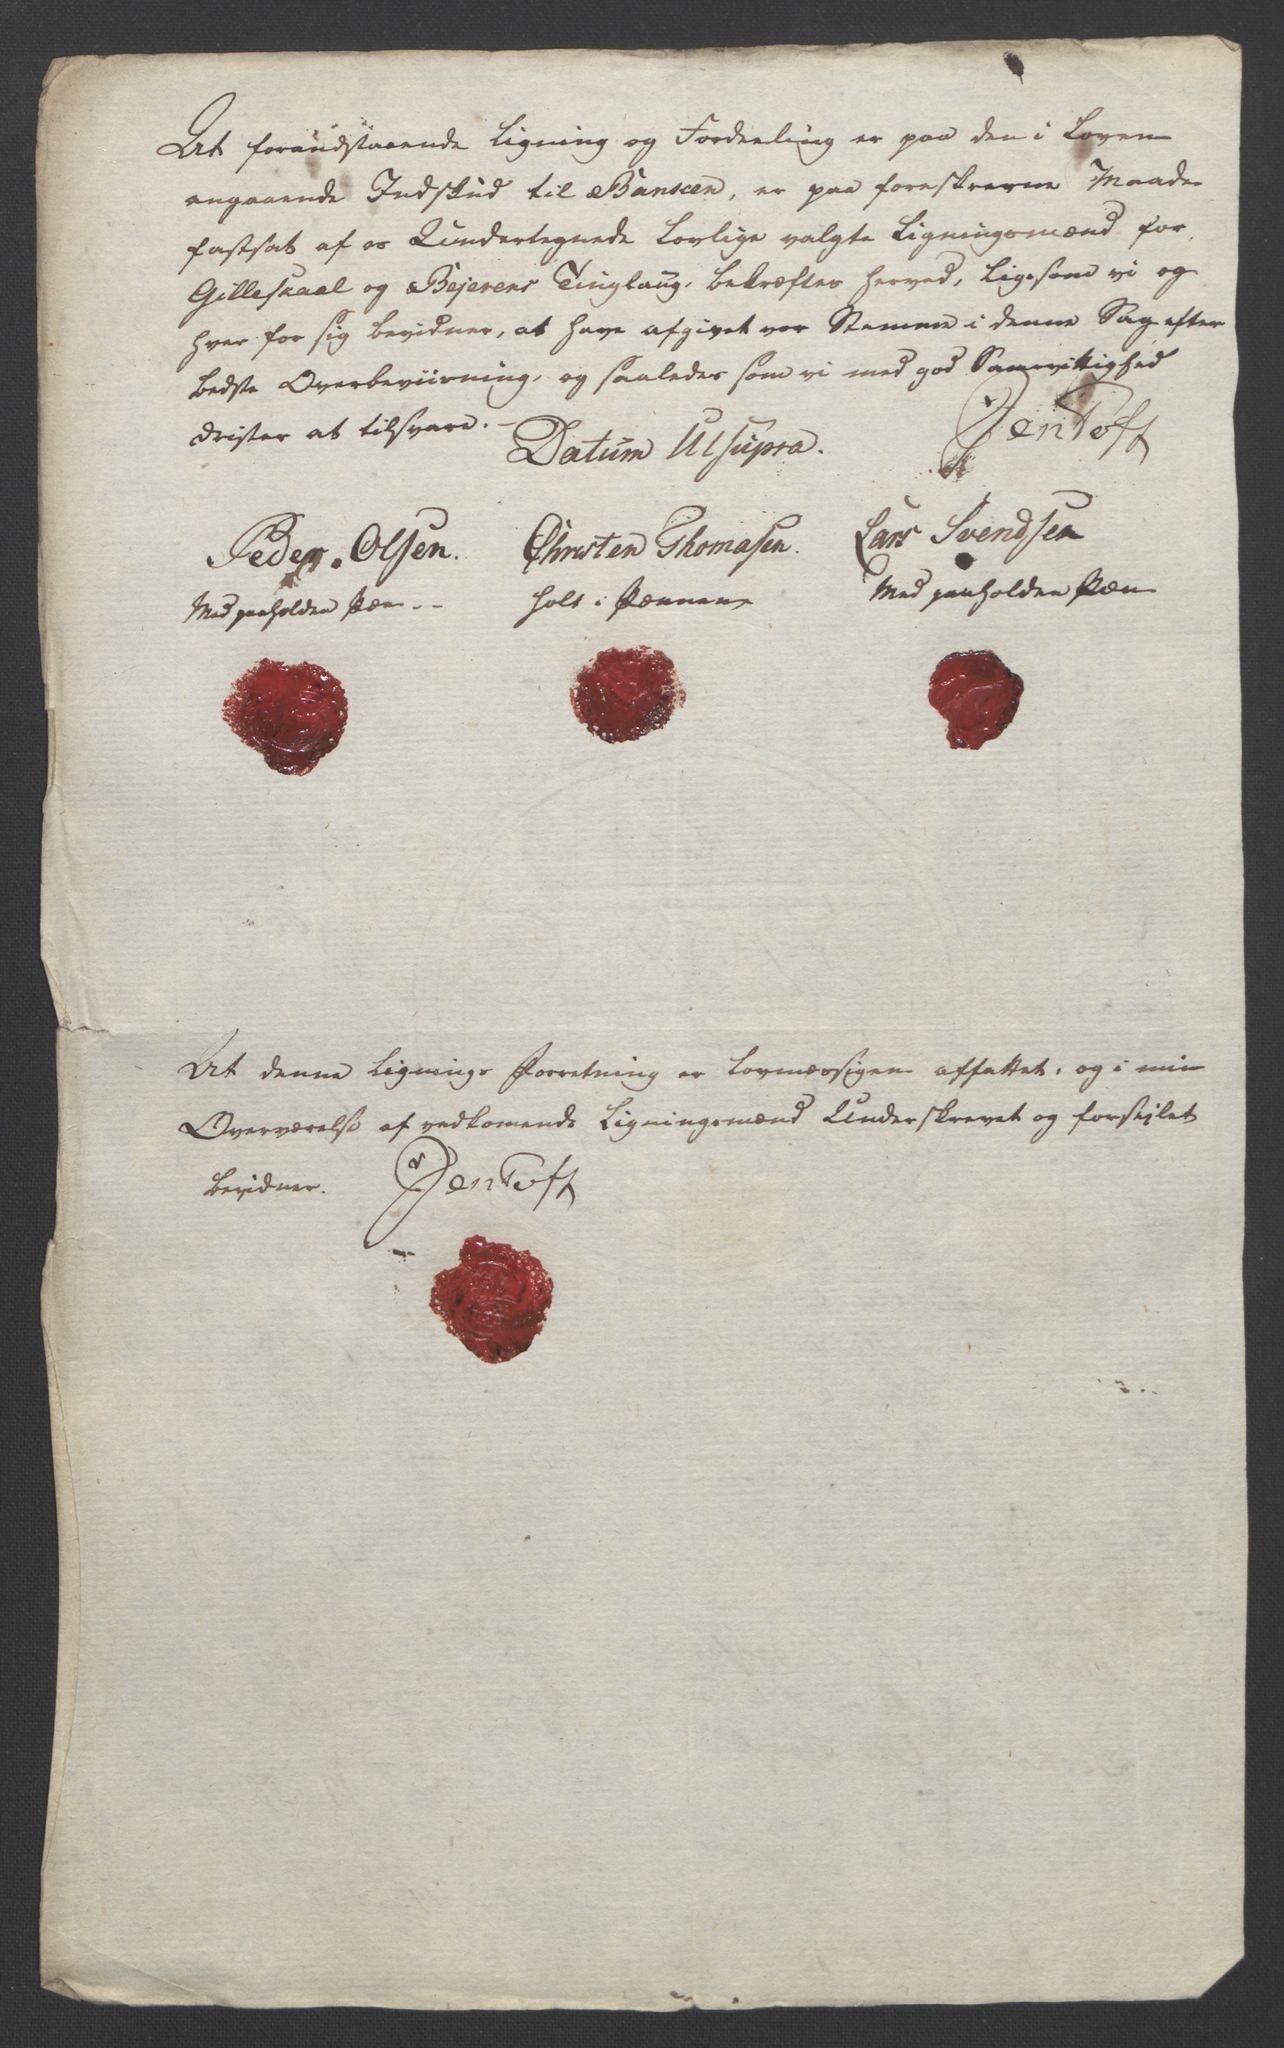 At foranstaaende Ligning og Fordeeling er paa den i Loven
angaaende Indskud til Banken, er paa foreskrevne Maade
fastsat af os Undertegnede Lovlige valgte Ligningsmænd for
Gilleskaal og Bejerens Tinglaug, bekræftes herved, Ligesom vi og
hver for sig bevidner, at have afgivet vor Stemme i denne Sag efter
bedste Overbeviisning, og saaledes som vi med god Samvittighed
drister at tilsvare.
Datum Utsupra.
JenToft
Peder Olsen. Christen Thomasen. Lars Svendsen
Med paaholden Pæn holt i Pennen Med paaholden Pæn
At denne Lignings Forretning er Lovmæssigen affattet, og i min
Overværelse af vedkomende Ligningsmænd Underskrevet og forseglet
bevidner. JenToft